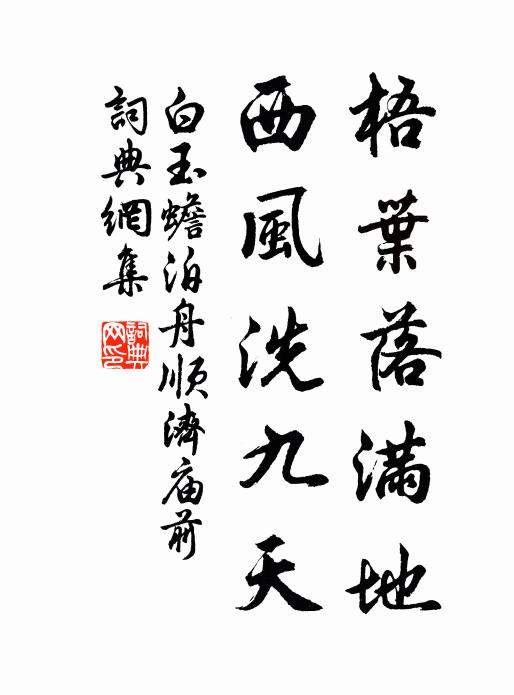 梧葉落滿地
西風洗九天
白玉蟾泊舟順濟庙前
詞典網集
詞典網印